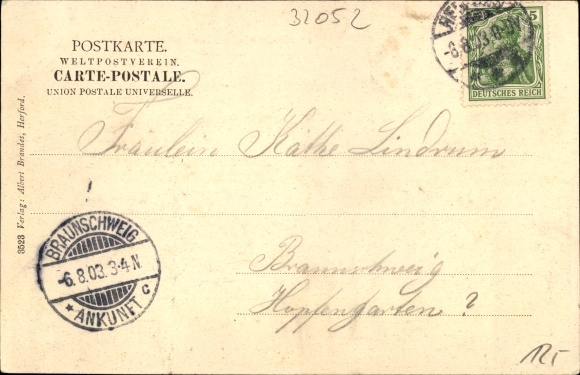 32052
POSTKARTE.
WELTPOSTVEREIN.
CARTE-POSTALE.
UNION POSTALE UNIVERSELLE.
5
DEUTSCHES REICH
-6.8.03.
Fräulein Käthe Lindrum
3523 Verlag: Albert Brandes, Herford.
BRAUNSCHWEIG
-6.8.03.3-4 N
* ANKUNFT C
Braunschweig
Hopfengarten ?
12,-